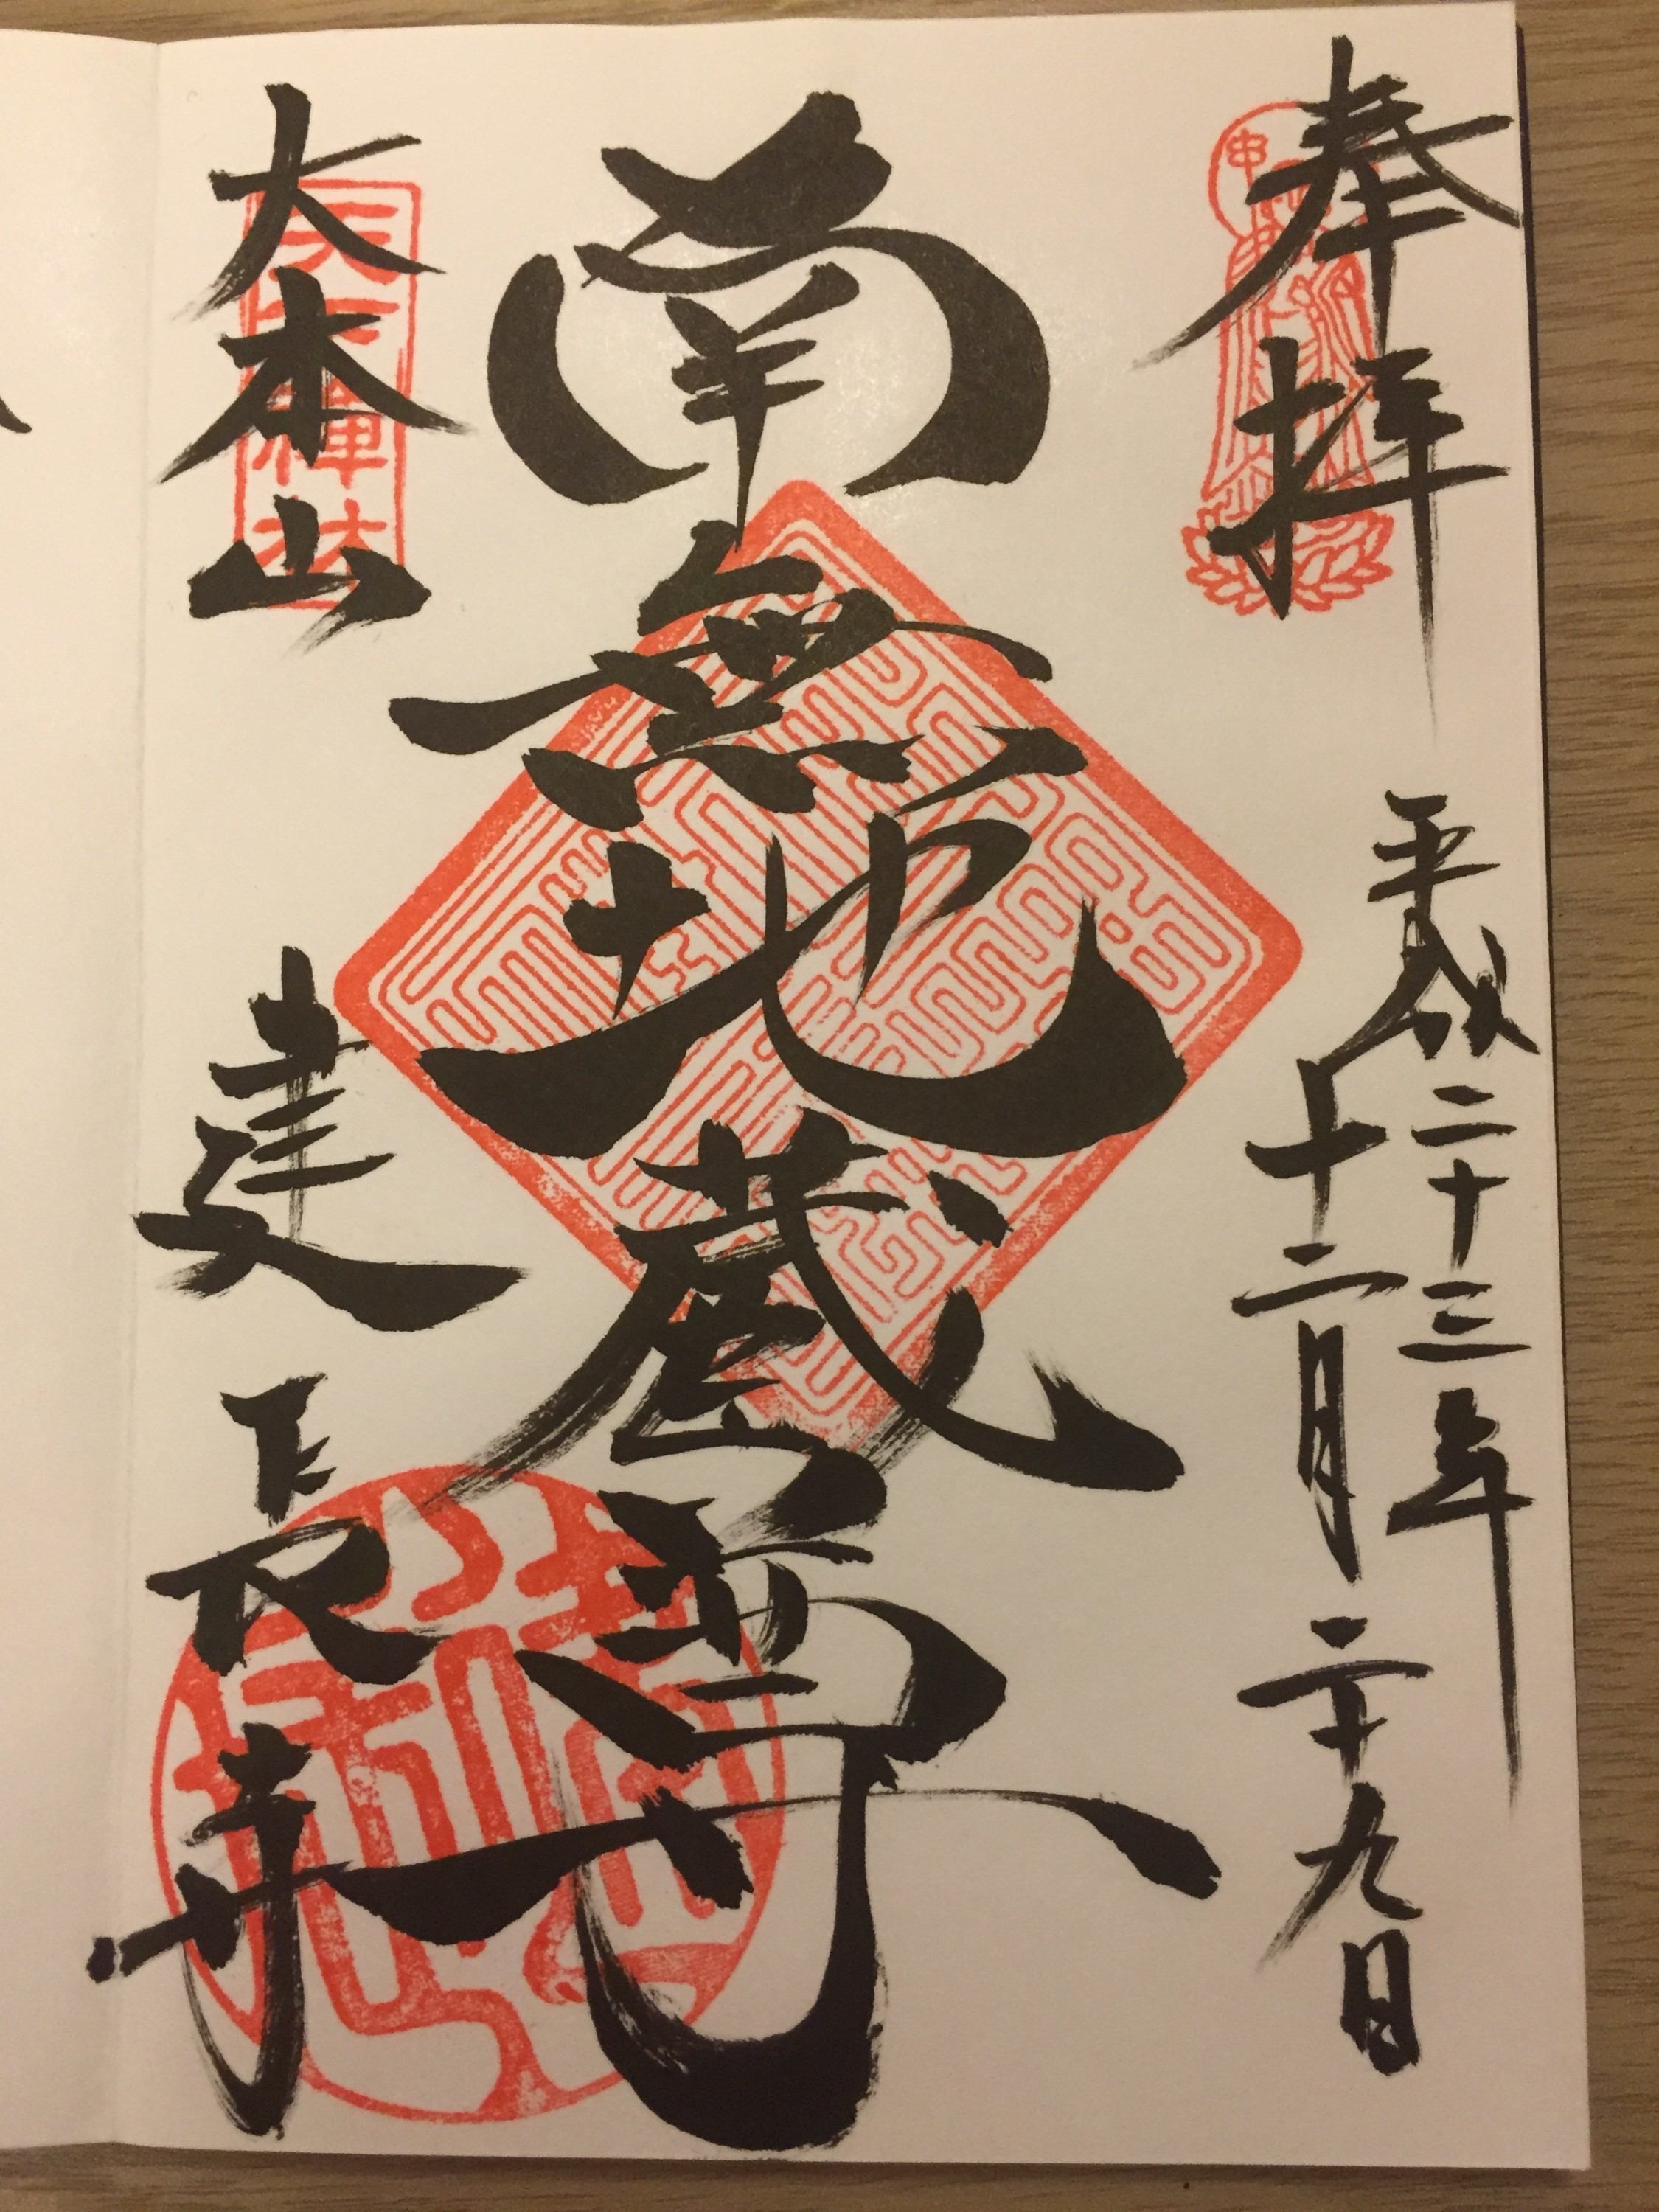 奉拝
平成二十三年
十二月二十九日
南無地蔵尊
大本山
建長寺
天下禅林